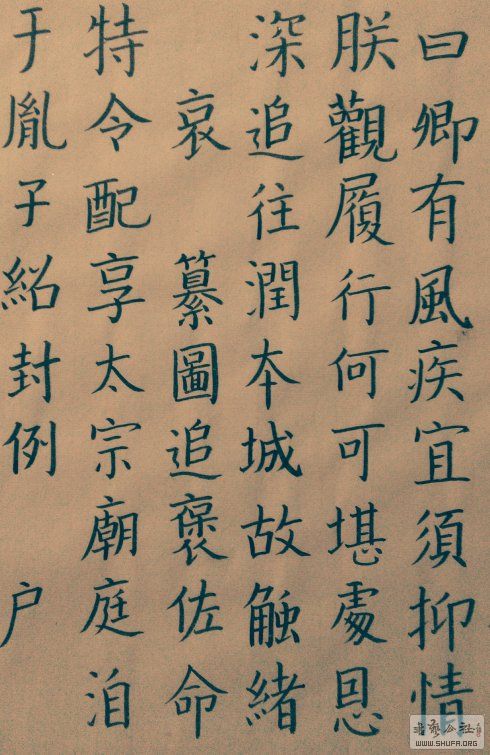 曰卿有風疾宜須抑情
朕觀履行何可堪處恩
深追往潤本城故触緒
哀 纂圖追褒佐命
特令配享太宗廟庭洎
于胤子紹封例 户
书法公社
WWW.SHUFA.ORG